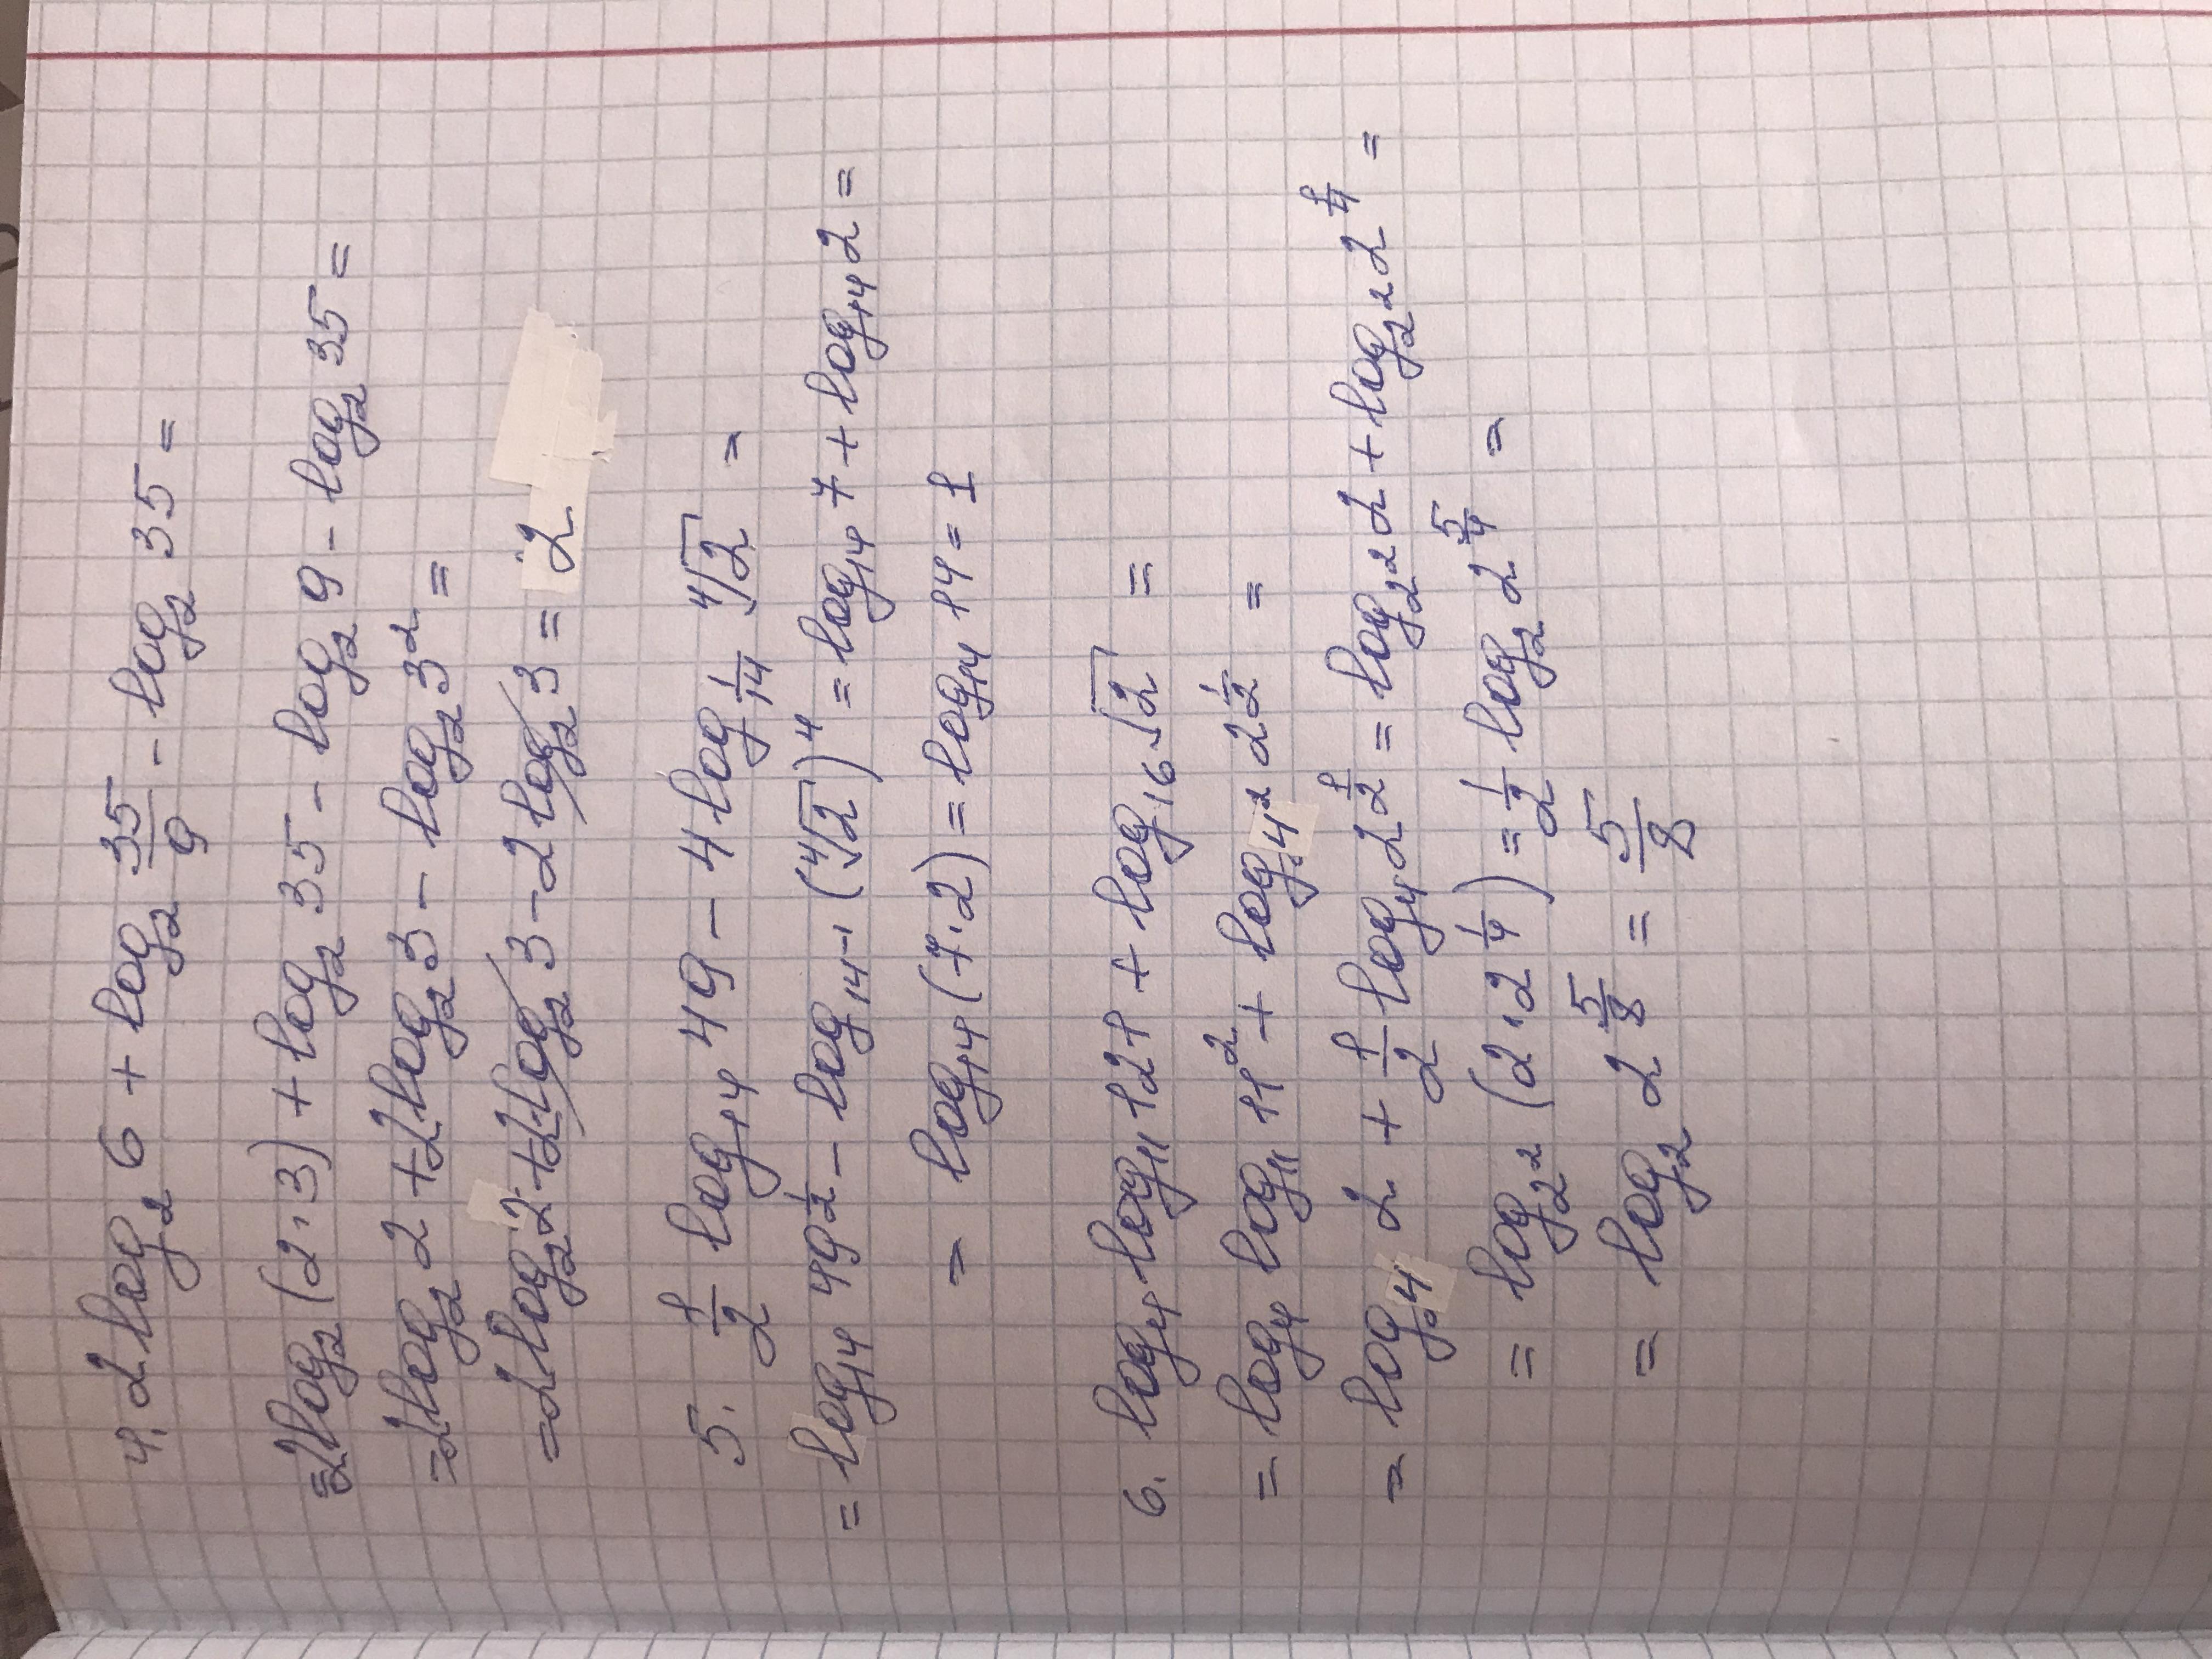 4. 2log₂6 + log₂ 35/9 - log₂35 =
=2log₂(2·3) + log₂35 - log₂9 - log₂35 =
=2log₂2 + 2log₂3 - log₂3² =
=2log₂2 + 2log₂3 - 2log₂3 = 2
5. 1/2 log₁₄49 - 4log_(1/14) ⁴√2 =
= log₁₄49^(1/2) - log_(14⁻¹)(⁴√2)⁴ = log₁₄7 + log₁₄2 =
= log₁₄(7·2) = log₁₄14 = 1
6. log₄log₁₁121 + log₁₆√2 =
= log₄log₁₁11² + log_(4²)2^(1/2) =
= log₄2 + 1/2 log₄2^(1/2) = log_(2²)2 + log_(2²)2^(1/4) =
= log_(2²)(2·2^(1/4)) = 1/2 log₂2^(5/4) =
= log₂2^(5/8) = 5/8